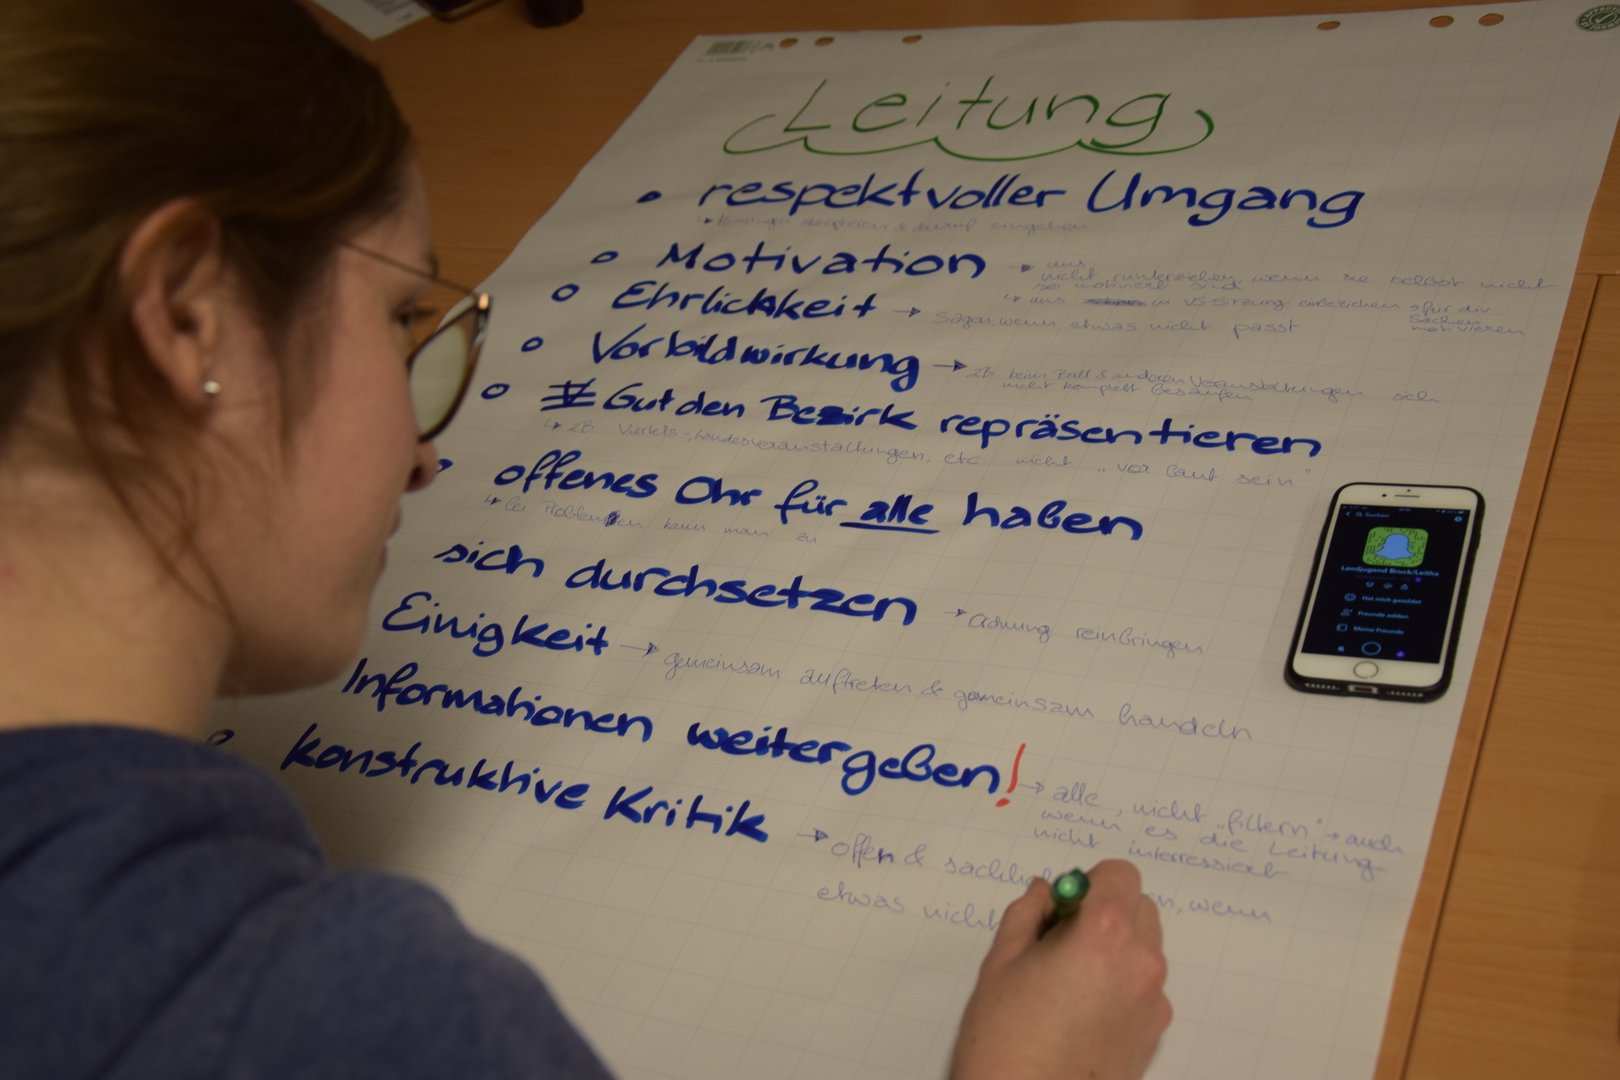 Leitung
respektvoller Umgang
↳ Meinungen akzeptieren & darauf eingehen
Motivation → uns
nicht runterziehen wenn sie selbst nicht
so motiviert sind
↳ uns in VS-Sitzung einbeziehen → für die
Sachen
motivieren
Ehrlichkeit → sagen wenn etwas nicht passt
Vorbildwirkung → zB beim Ball & anderen Veranstaltungen sich
nicht komplett besaufen
Gut den Bezirk repräsentieren
↳ zB Viertels-, Landesveranstaltungen, etc nicht „vor laut sein"
offenes Ohr für alle haben
↳ bei Problemen kann man zu
sich durchsetzen → Ordnung reinbringen
Einigkeit → gemeinsam auftreten & gemeinsam handeln
Informationen weitergeben! → alle, nicht „filtern" → auch
wenn es die Leitung
nicht interressiert
konstruktive Kritik → offen & sachli en, wenn
etwas nicht
Suchen
Landjugend Bruck/Leitha
Hat mich geaddet
Freunde adden
Meine Freunde